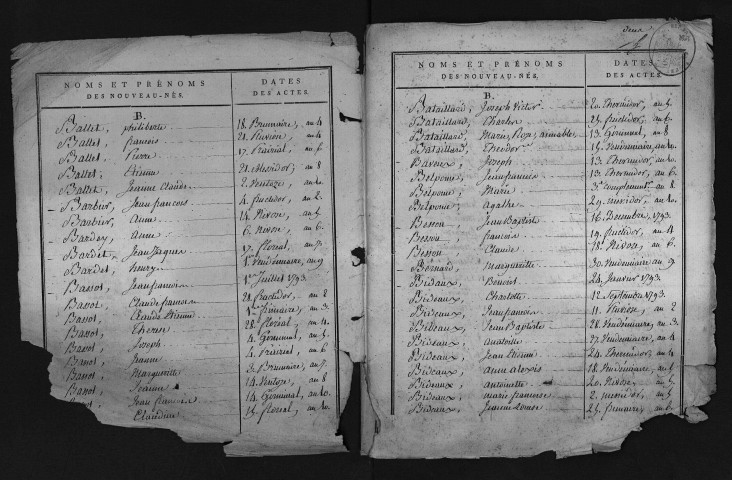 NOMS ET PRÉNOMS
DES NOUVEAU-NÉS.
DATES
DES ACTES.
B.
Ballet, philiberte 18. Brumaire, an 4
Ballet, francois 21. Pluviose, an 4
Ballet, Pierre 17. Prairial, an 6
Ballet, Etienne 21. Messidor, an 8
Ballet, Jeanne Claude 2. Ventoze, an
Barbier, Jean francois 4. fructidor, an 2.
Barbier, Anne 14. Nivose, an 5.
Barday, anne 6. Nivose, an 6.
Bardet, Jean Jaques 17. floreal, an 7.
Bardet, henry 1er Vendémiaire, an 9
Bassot, Jean francois 1er Juillet 1793.
Bassot, Claude francois 21. fructidor, an 2
Bassot, Claude Etienne 1er frimaire, an 3.
Bassot, Therese 28. floreal, an 4.
Bassot, Joseph 4. Germinal, an 5.
Bassot, Jeanne 4. Prairial, an 6.
Bassot, Marguerite 3. Brumaire, an 7.
Bassot, Jeanne 14. Ventoze, an 8
Bassot, Jean francois 14. Germinal, an 10.
Claudine 15. floreal, an 10.
deux
NOMS ET PRÉNOMS
DES NOUVEAU-NÉS.
DATES
DES ACTES.
B.
Bataillard, Joseph Victor 20. Thermidor, an 5.
Bataillard, Charles 25. fructidor, an 6.
Bataillard, Marie Rose, aimable 13. Germinal, an 8
Bataillard, Theodor 15. Vendémiaire, an 10.
Bavoux, Joseph 13. Thermidor, an 10.
Belpome, Jean francois 13. Thermidor, an 6.
Belpome, Marie 3e complementre an 8.
Belpome, Agathe 29. messidor, an 10.
Besson, Jean Baptiste 16. Decembre, 1793.
Besson, francois 19. fructidor, an 4
Besson, Claude 18. Nivose, an 6.
Bonnard, marguerite 30. Vendémiaire an 9.
Bideaux, Benoit 24. Janvier 1793.
Bideaux, Charlotte 12. Septembre 1793.
Bideaux, Jean francois 11. Nivose, an 2
Bideaux, Jean Baptiste 28. Vendémiaire, an 3.
Bideaux, anatoile 27. Vendémiaire, an 4
Bideaux, Jean Etienne 24. Thermidor, an 4
Bideaux, anne alexis 18. Vendémiaire, an 5.
Bideaux, antoinette 20. Nivose, an 5.
Bideaux, marie francoise 2. messidor, an 5.
Bideaux, Jeanne Louise 25. frimaire, an 6.